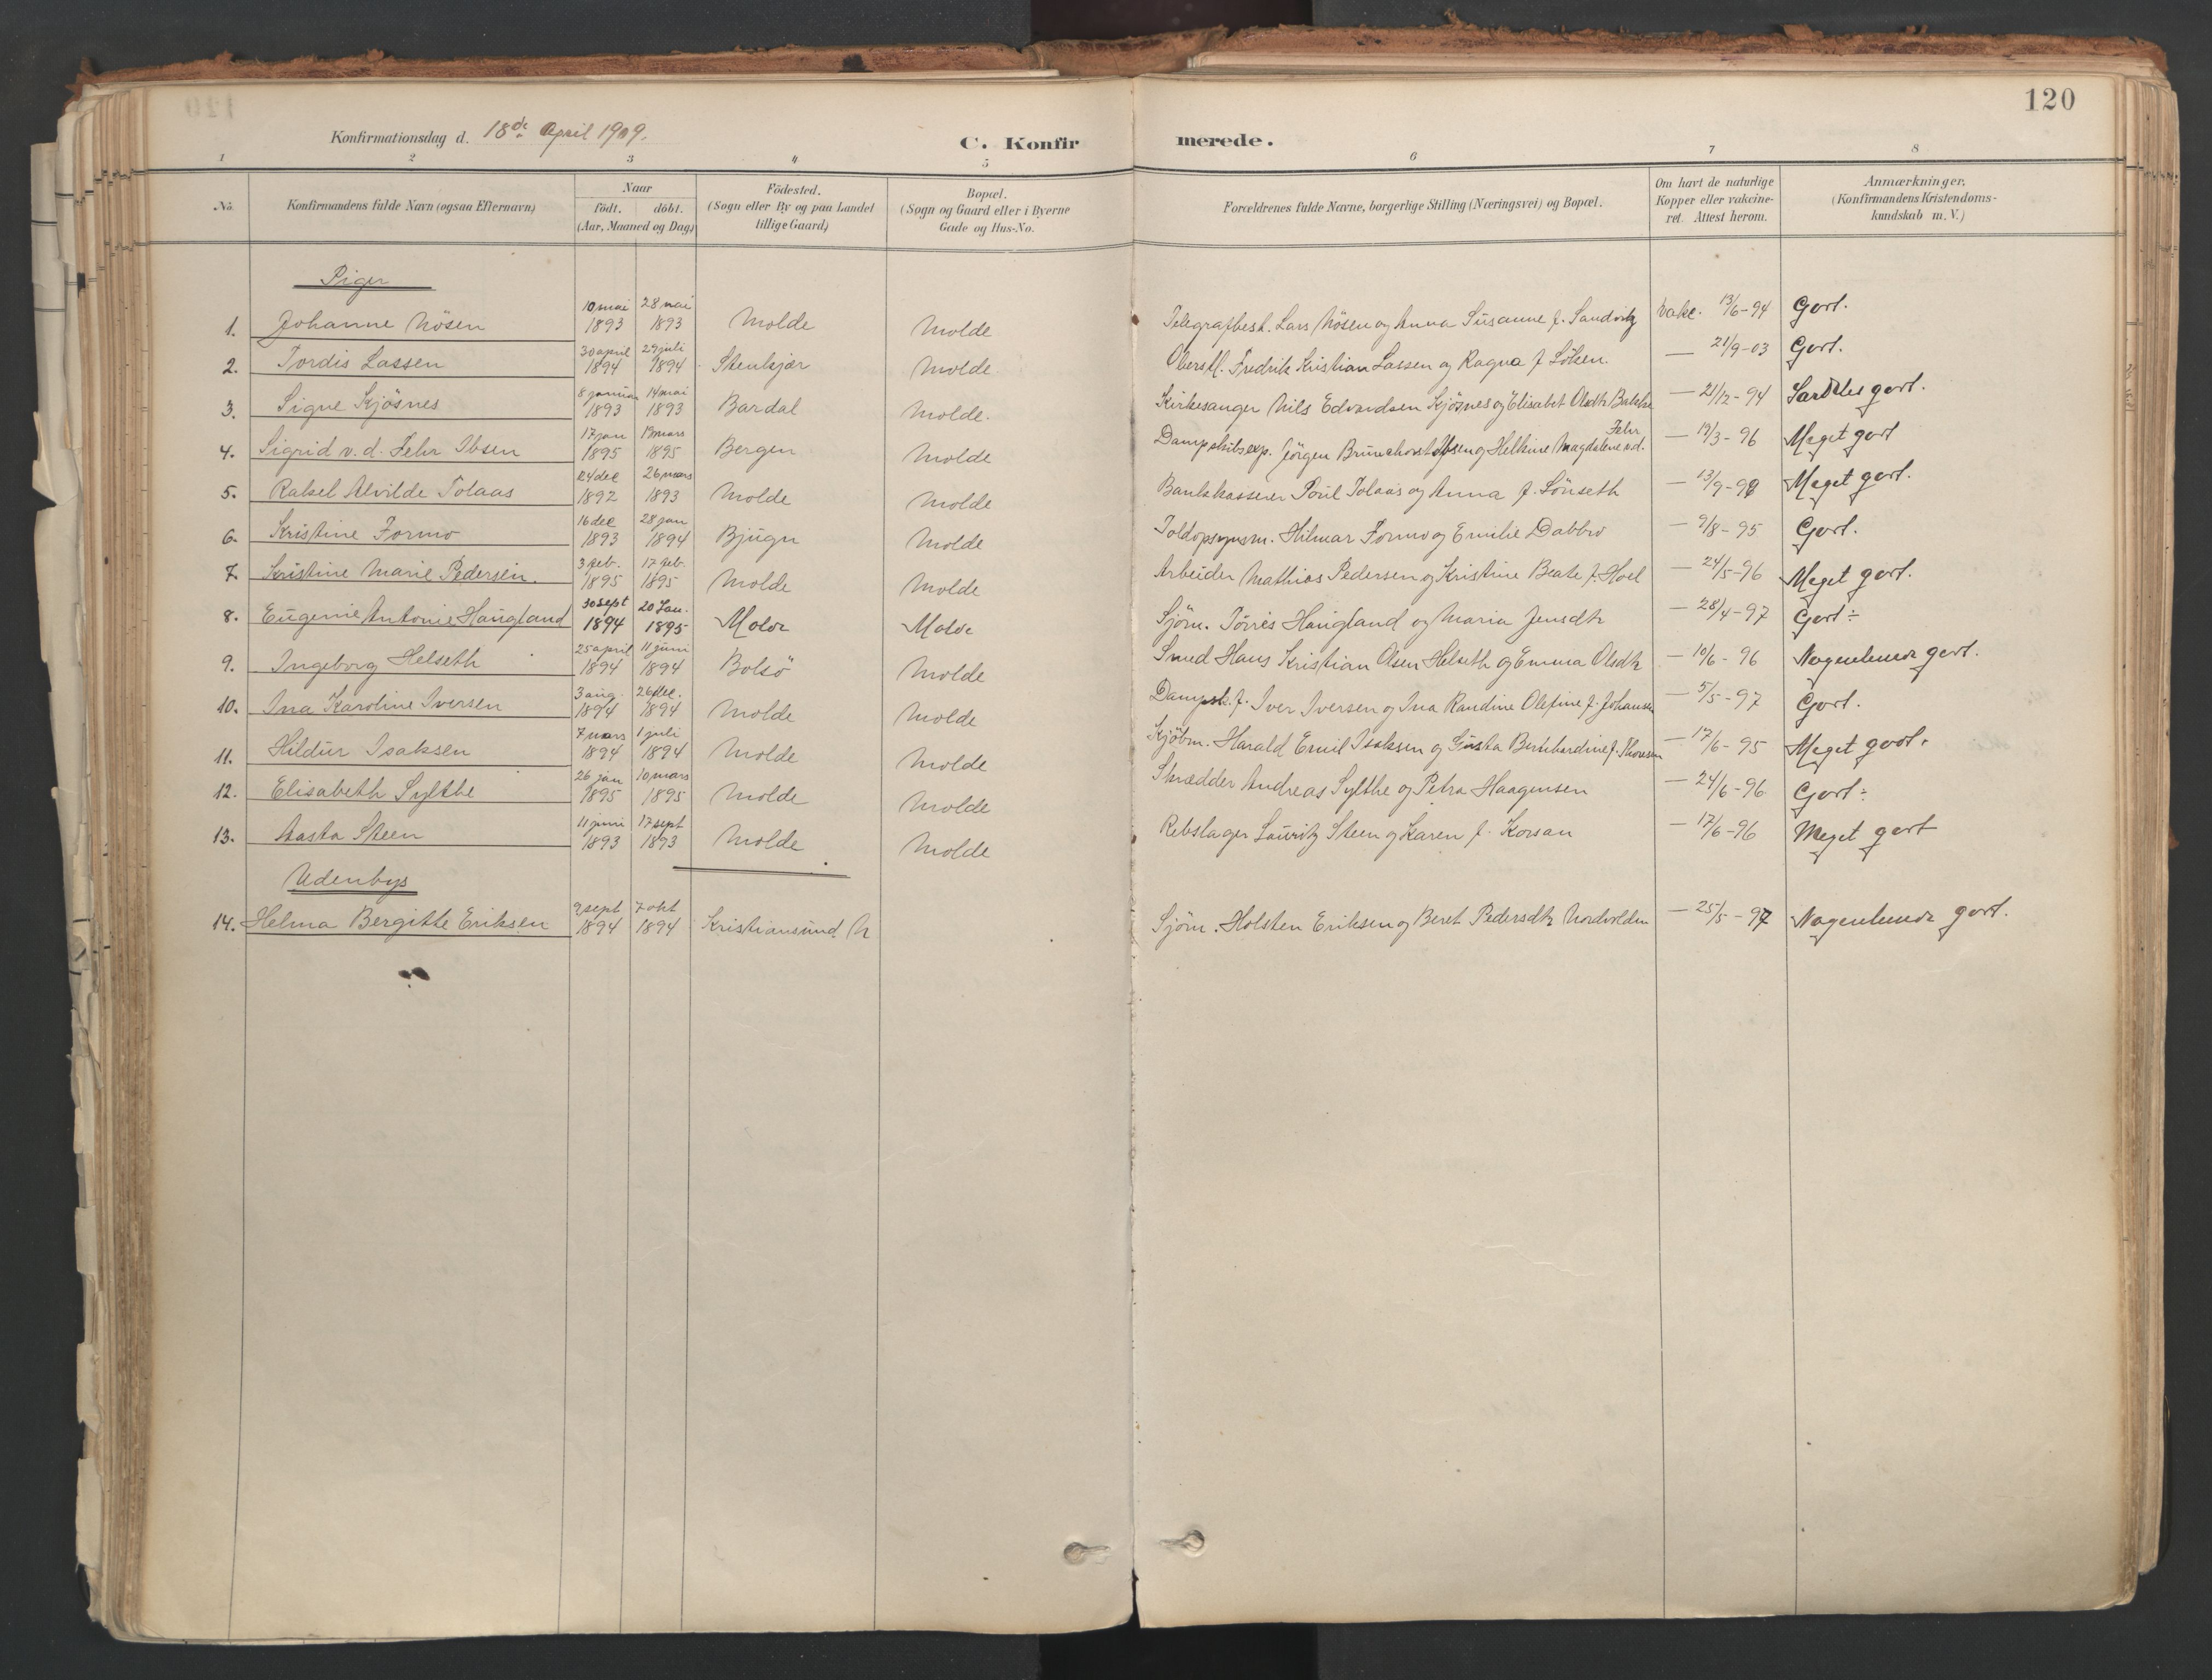 120
Konfirmationsdag d. 18de April 1909.
C. Konfirmerede.
1 2 3 4 5 6 7 8
No. Konfirmandens fulde Navn (ogsaa Efternavn) Naar födt. döbt. (Aar, Maaned og Dag) Födested. (Sogn eller By og paa Landet tillige Gaard) Bopæl. (Sogn og Gaard eller i Byerne Gade og Hus-No. Forældrenes fulde Navne, borgerlige Stilling (Næringsvei) og Bopæl. Om havt de naturlige Kopper eller vakcineret. Attest herom. Anmærkninger, (Konfirmandens Kristendomskundskab m. V.)
Piger
1. Johanne Nösen 10 mai 1893 28 mai 1893 Molde Molde Telegrafbest. Lars Nösen og Anna Susanne f. Sandvig Vakc. 13/6-94 Godt.
2. Tordis Lassen 30 april 1894 29 juli 1894 Stenkjær Molde Oberstl. Fredrik Kristian Lassen og Ragna f. Löken. — 21/9-03 Godt.
3. Signe Kjösnes 8 januar 1893 14 mai 1893 Bardal Molde. Kirkesanger Nils Edvardsen Kjösnes og Elisabet Olsdtr — 21/12-94 Særdeles godt.
4. Sigrid v. d. Fehr Ibsen 17 jan 1895 19 mars 1895 Bergen Molde Dampskibsexp. Jörgen Brunchorst Ibsen og Helkine Magdalene v.d. Fehr — 19/3-96 Meget godt
5. Rakel Alvilde Tolaas 24 dec 1892 26 mars 1893 Molde Molde Bankkasserer Poul Tolaas og Anna f. Lönseth — 13/9-98 Meget godt.
6. Kristine Formo 16 dec 1893 28 jan 1894 Bjugn Molde Toldopsynsm. Hilmar Formo og Emilie Dabbro — 9/8-95 Godt.
7. Kristine Marie Pedersen. 3 feb. 1895 17 feb. 1895 Molde Molde Arbeider Mathias Pedersen og Kristine Beate f. Hoel — 24/5-96 Meget godt.
8. Eugenie Antonie Haugland 30 sept 1894 20 Jan. 1895 Molde Molde Sjöm. Törris Haugland og Maria Jensdtr — 28/4-97 Godt ÷
9. Ingeborg Helseth 25 april 1894 11 juni 1894 Bolsö Molde Smed Hans Kristian Olsen Helseth og Emma Olsdtr — 10/6-96 Nogenlunde godt.
10. Ina Karoline Iversen 3 aug. 1894 26 dec. 1894 Molde Molde Dampsk.f. Iver Iversen og Ina Randine Olefine f. Johansen — 5/5-97 Godt.
11. Hildur Isaksen 7 mars 1894 1 juli 1894 Molde Molde Kjöbm. Harald Emil Isaksen og Gusta Bernhardine f. Thoresen — 17/6-95 Meget godt.
12. Elisabeth Sylthe 26 jan 1895 10 mars 1895 Molde Molde Skrædder Andreas Sylthe og Petra Haagensen — 24/6-96 Godt ÷
13. Aasta Steen 11 juni 1893 17 sept 1893 Molde Molde Rebslager Lauritz Steen og Karen f. Korsan — 17/6-96 Meget godt
Udenbys
14. Helma Bergitte Eriksen 9 sept 1894 7 okt 1894 Kristiansund N Sjöm. Holsten Eriksen og Beret Pedersdtr Nordvolden — 25/5-97 Nogenlunde godt.